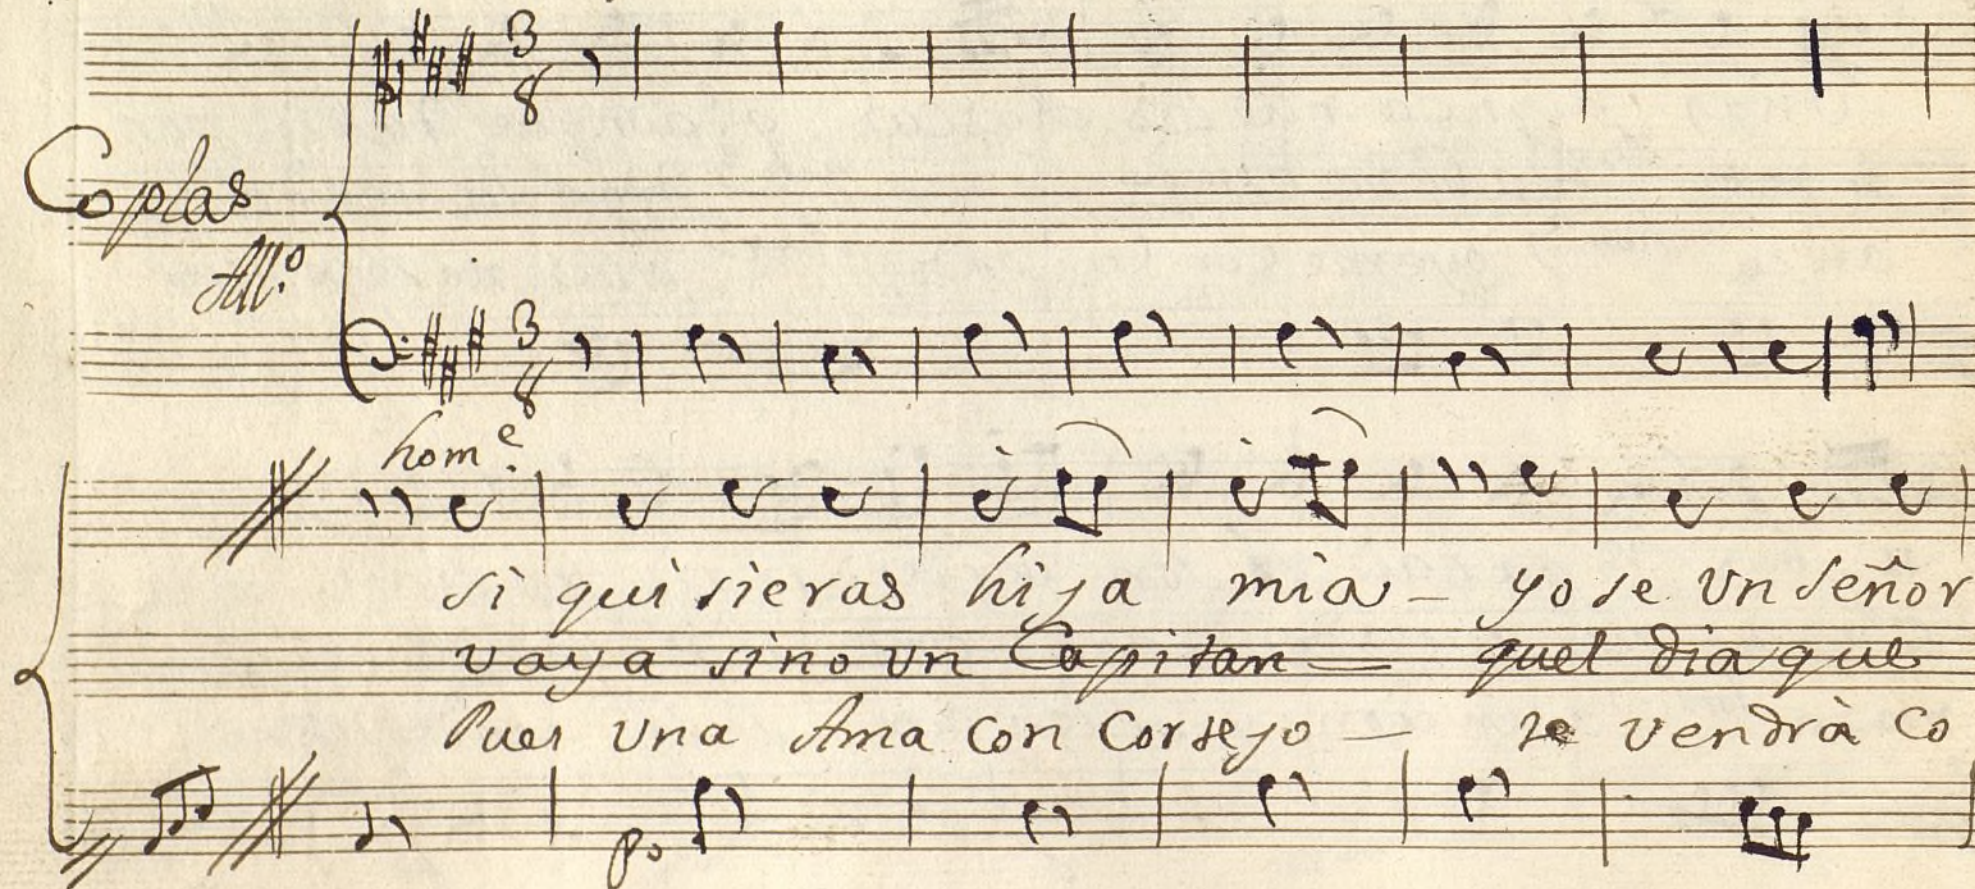 3
8
Coplas
All.º
3
8
hom.e
si qui sieras hija mia - yo se un señor
vaya sino un Capitan — quel dia que
Pues una Ama con Corsejo — se vendrà co
p.o